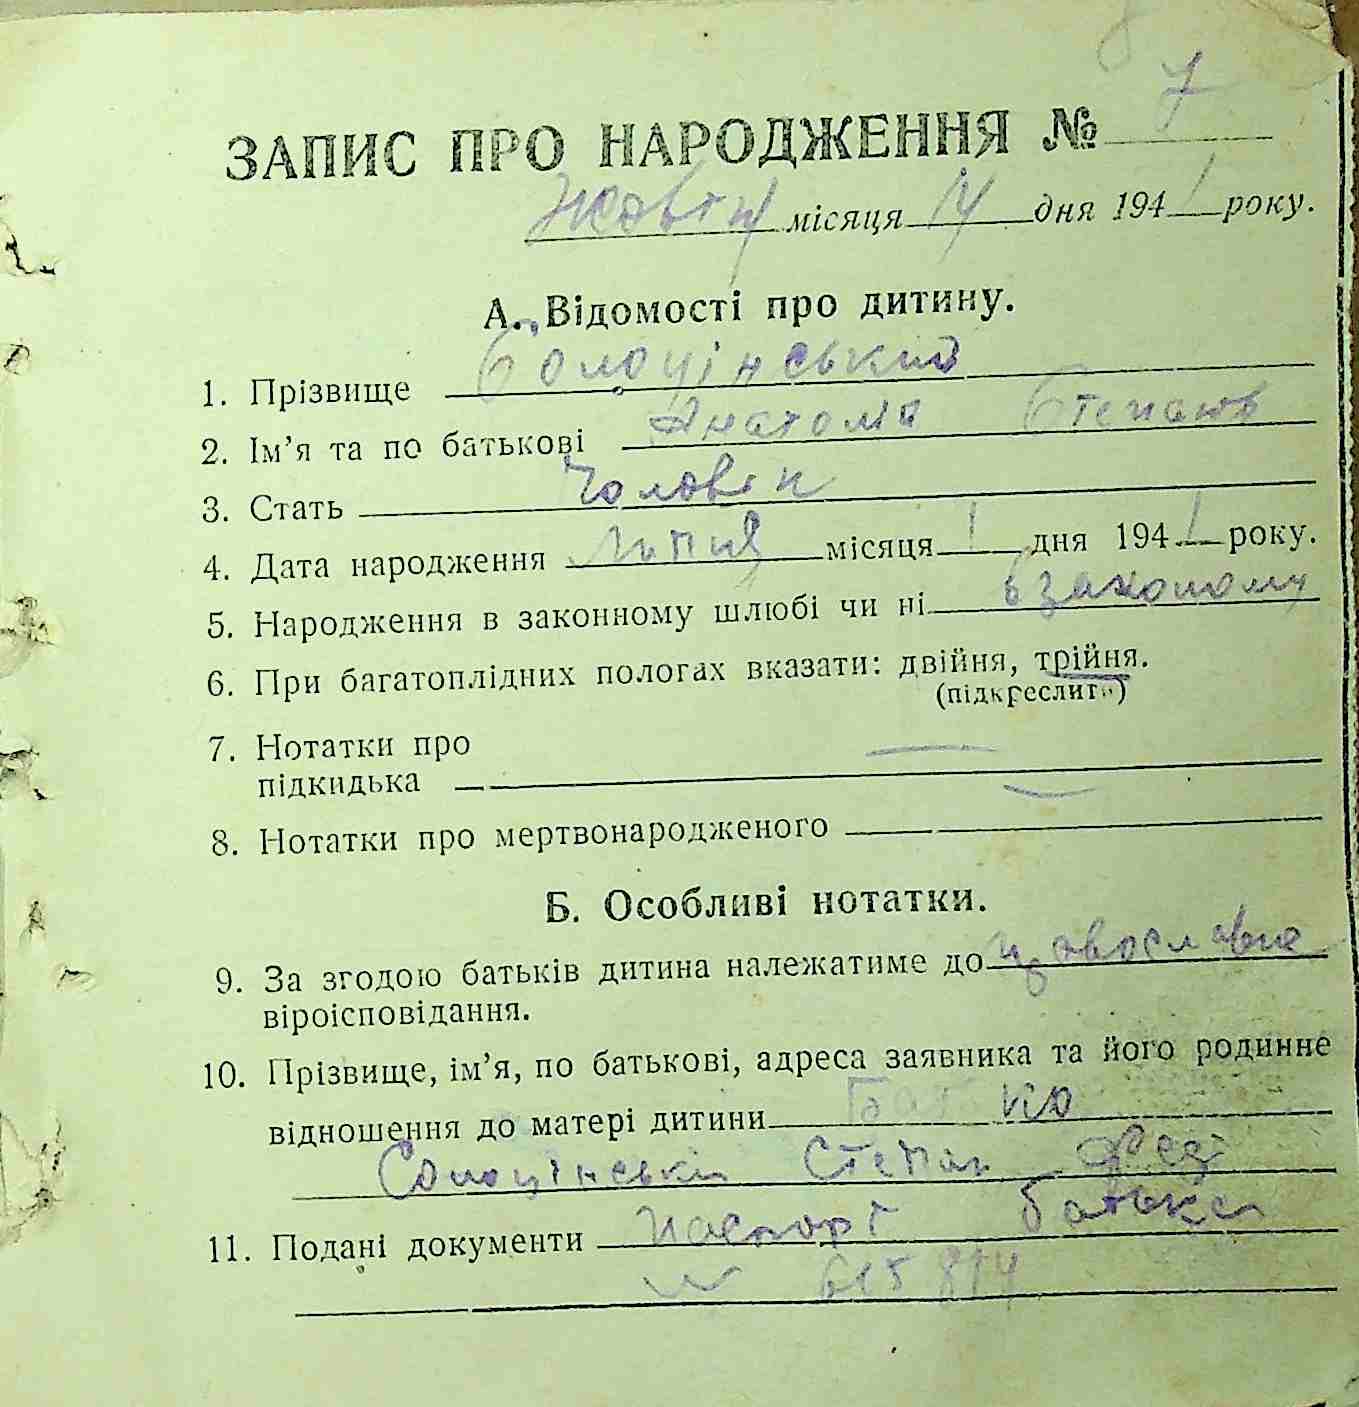 ЗАПИС ПРО НАРОДЖЕННЯ № 7
Жовтня місяця 14 дня 1941 року.
А. Відомості про дитину.
1. Прізвище Солоцінський
2. Ім'я та по батькові Анатолій Степанов
3. Стать Чоловік
4. Дата народження Липня місяця 1 дня 1941 року.
5. Народження в законному шлюбі чи ні в законому
6. При багатоплідних пологах вказати: двійня, трійня.
(підкреслить)
7. Нотатки про
підкидька —
8. Нотатки про мертвонародженого —
Б. Особливі нотатки.
9. За згодою батьків дитина належатиме до православне
віроісповідання.
10. Прізвище, ім'я, по батькові, адреса заявника та його родинне
відношення до матері дитини Батько
Солоцінські Степан Феді
11. Подані документи паспорт батька
№ 615 814